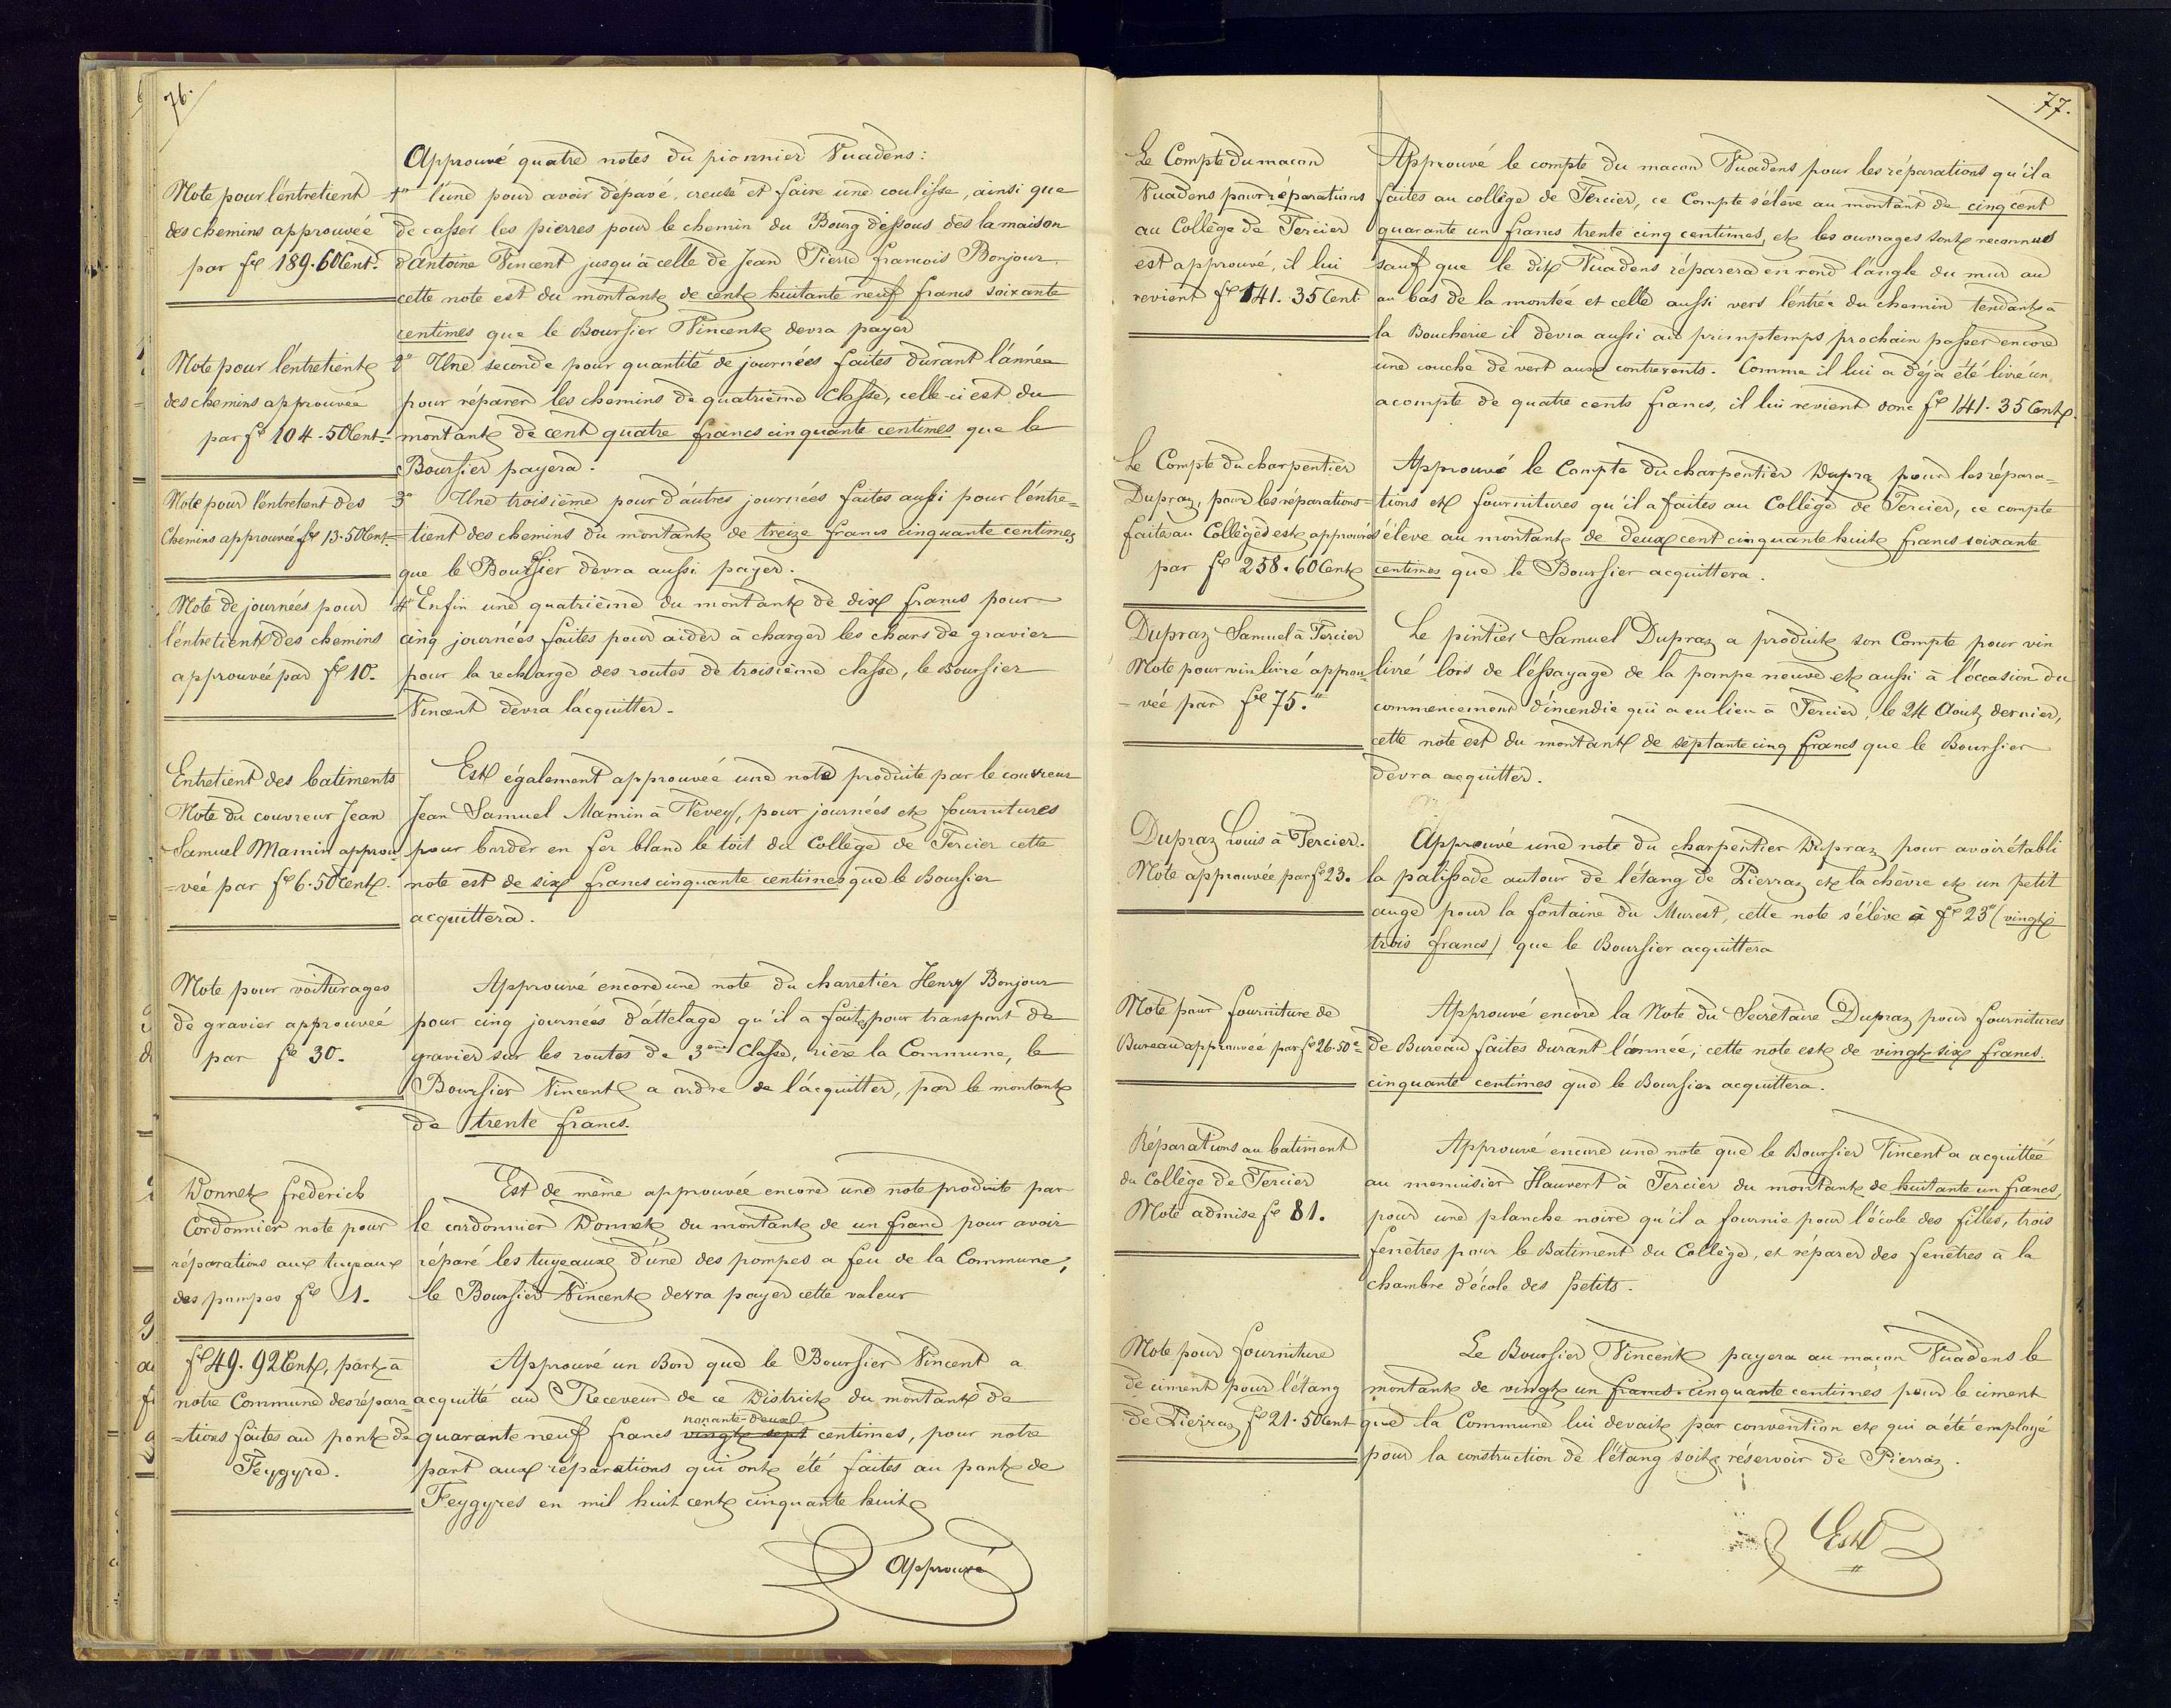 76.
Approuvé quatre notes du pionnier Vuadens:
Note pour l'entretient
des chemins approuvée
par fs 189.60Cent.
1° l'une pour avoir depavé, creusé et faire une coulisse, ainsi que
de casser les pierres pour le chemin du Bourg dessous dès la maison
d'Antoine Vincent jusqu'à celle de Jean Pierre francois Bonjour
cette note est du montant de cent huitante neuf francs soixante
centimes que le Boursier Vincent devra payer
Note pour l'entretient
des chemins approuvée
par fs 104.50Cent.
2° Une seconde pour quantité de journées faites durant l'année
pour réparer les chemins de quatrième Classe, celle-ci est du
montant de cent quatre francs cinquante centimes que le
Boursier payera.
Note pour l'entretient des
Chemins approuvée fs 13.50Cent.
3° Une troisième pour d'autres journées faites aussi pour l'entre=
=tient des chemins du montant de treize francs cinquante centimes
que le Boursier devra aussi payer.
Note de journées pour
l'entretient des chemins
approuvée par fs 10.
4° Enfin une quatrième du montant de dix francs pour
cinq journées faites pour aider à charger les chars de gravier
pour la recharge des routes de troisième classe, le Boursier
Vincent devra l'acquitter.
Entretient des batiments
Note du couvreur Jean
Samuel Mamin approu
=vée par fs 6.50Cent.
Est également approuvée une note produite par le couvreur
Jean Samuel Mamin à Vevey, pour journées et fournitures
pour border en fer blanc le toit du Collège de Tercier cette
note est de six francs cinquante centimes que le Boursier
acquittera.
Note pour voiturages
de gravier approuveé
par fs 30.
Approuvé encore une note du charretier Henry Bonjour
pour cinq journées d'attelage qu'il a faites pour transport de
gravier sur les routes de 3ème Classe, rière la Commune, le
Boursier Vincent a ordre de l'acquitter, par le montant
de trente francs.
Donnet frederich
Cordonnier note pour
réparations aux tuyeaux
des pompes fs 1.
Est de même approuvée encore une note produite par
le cordonnier Donnet du montant de un franc pour avoir
réparé les tuyeaux d'une des pompes a feu de la Commune,
le Boursier Vincent devra payer cette valeur
fs 49.92Cent, part à
notre Commune des répara=
=tions faites au pont de
Feygyre.
Approuvé un Bon que le Boursier Vincent a
acquitté au Receveur de ce District du montant de
nonante-deux
quarante neuf francs vingt sept centimes, pour notre
part aux réparations qui ont été faites au pont de
Feygyres en mil huit cent cinquante huit
Approuvé
77.
Le Compte du macon
Vuadens pour réparations
au Collège de Tercier
est approuvé, il lui
revient fs 141.35Cent.
Approuvé le compte du macon Vuadens pour les réparations qu'il a
faites au collège de Tercier, ce Compte s'élève au montant de cinq cent
quarante un francs trente cinq centimes, et les ouvrages sont reconnus
sauf que le dit Vuadens réparera en rond l'angle du mur au
au bas de la montée et celle aussi vers l'entrée du chemin tendant à
la Boucherie il devra aussi au primptemps prochain passer encore
une couche de vert aux contrevents. Comme il lui a déjà été livré un
acompte de quatre cents francs, il lui revient donc fs 141.35Cent.
Le Compte du charpentier
Dupraz, pour les réparations
faites au Collège est approuvé
par fs 258.60Cent
Approuvé le Compte du charpentier Dupra pour les répara=
=tions et fournitures qu'il a faites au Collège de Tercier, ce compte
s'élève au montant de deux cent cinquante huit francs soixante
centimes que le Boursier acquittera.
Dupraz Samuel à Tercier
Note pour vin livré approu=
=vée par fs 75."
Le pintier Samuel Dupraz a produit son Compte pour vin
livré lors de l'essayage de la pompe neuve et aussi à l'occasion du
commencement d'incendie qui a eu lieu à Tercier, le 24 Aout dernier,
cette note est du montant de septante cinq francs que le Boursier
devra acquitter.
Dupraz Louis à Tercier.
Note approuvée par fs 23.
Approuvé une note du charpentier Dupraz pour avoir établi
la palissade autour de l'étang de Pierraz et la chèvre et un petit
auge pour la fontaine du Murest, cette note s'élève à fs 23" (vingt
trois francs) que le Boursier acquittera
Note pour fourniture de
Bureau approuvée par fs 26.50c
Approuvé encore la Note du Secrétaire Dupraz pour fournitures
de Bureau faites durant l'année, cette note est de vingt six francs
cinquante centimes que le Boursier acquittera.
Réparations au batiment
du Collège de Tercier
Note admise fs 81.
Approuvé encore une note que le Boursier Vincent a acquittée
au menuisier Hauvert à Tercier du montant de huitante un francs,
pour une planche noire qu'il a fournie pour l'école des filles, trois
fenêtres pour le Batiment du Collège, et réparer des fenêtres à la
chambre d'école des petits.
Note pour fourniture
de ciment pour l'étang
de Pierraz fs 21.50Cent
Le Boursier Vincent payera au maçon Vuadens le
montant de vingt un francs cinquante centimes pour le ciment
que la Commune lui devait par convention et qui a été employé
pour la construction de l'étang soit réservoir de Pierraz.
Est